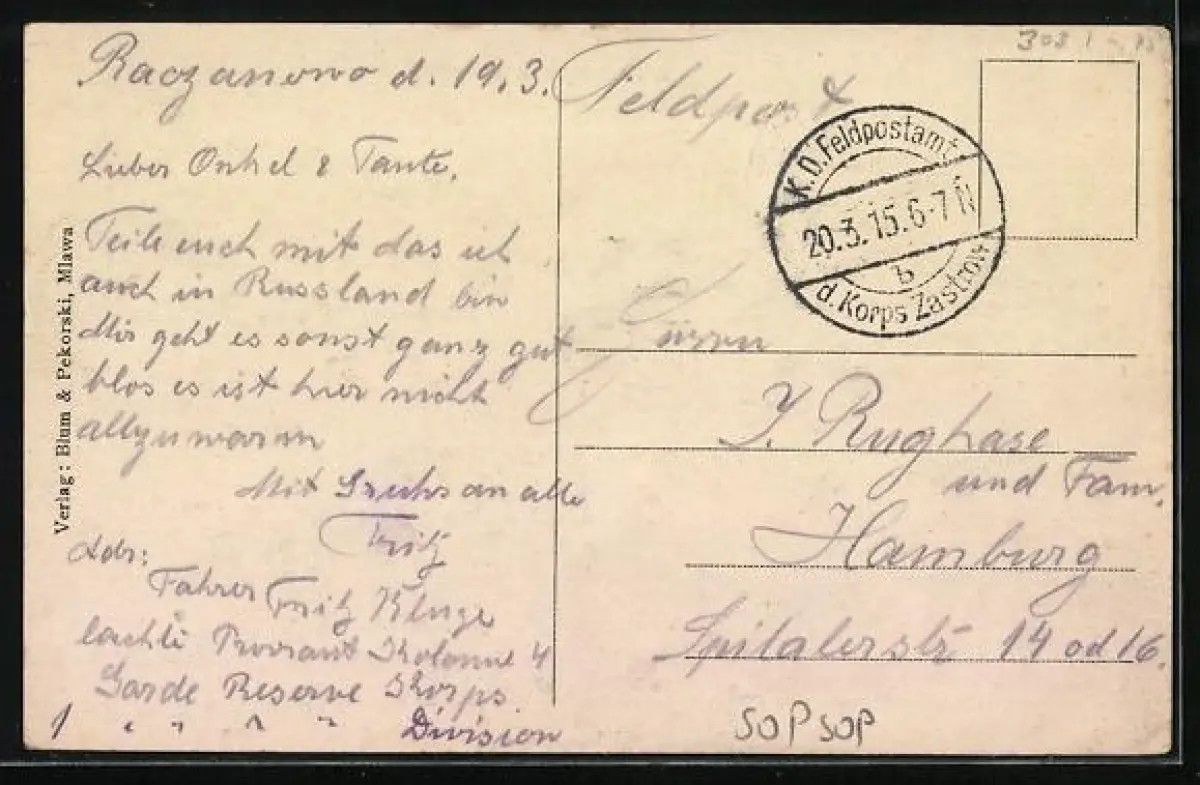 Raczanowo d. 19.3.
Lieber Onkel & Tante,
Teile euch mit das ich
auch in Russland bin
Mir geht es sonst ganz gut
blos es ist hier nicht
allzuwarm
Mit Gruhs an alle
Fritz
Adr:
Fahrer Fritz Kluge
Proviant Kolonne 4
Garde Reserve Korps
1 " " " " Division
Verlag: Blum & Pekorski, Mlawa
303
Feldpost
K.D. Feldpostamt
20.3.15.6-7 N
b
d. Korps Zastrow
Herrn
J. Rughase
und Fam.
Hamburg
Spitalerstr 14 od 16.
SOP SOP